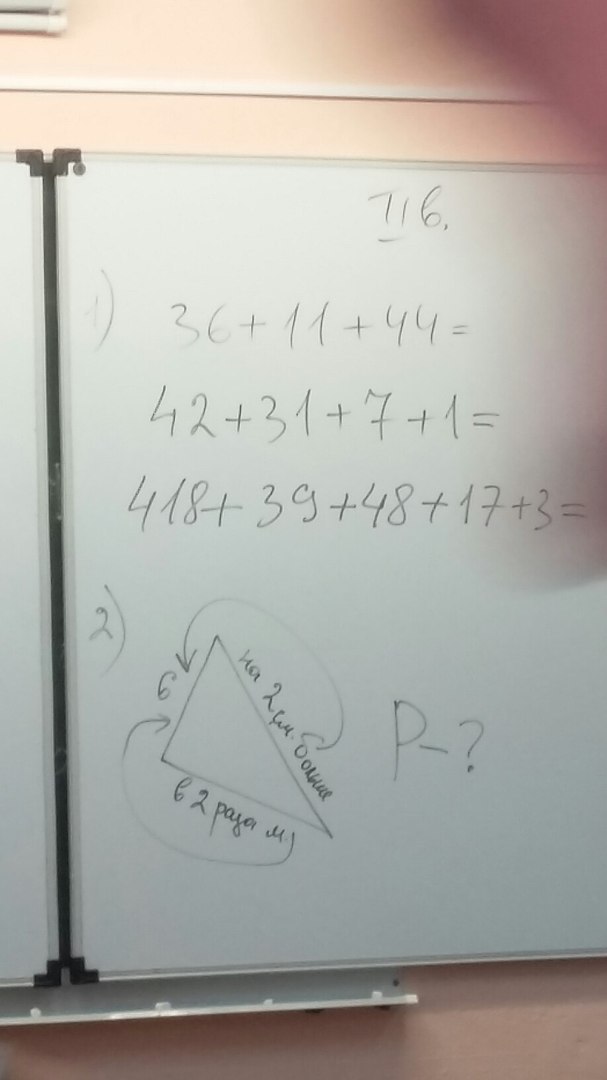 II в.
1)
36+11+44=
42+31+7+1=
418+39+48+17+3=
2)
6
на 2 см. больше
в 2 раза м.
P-?